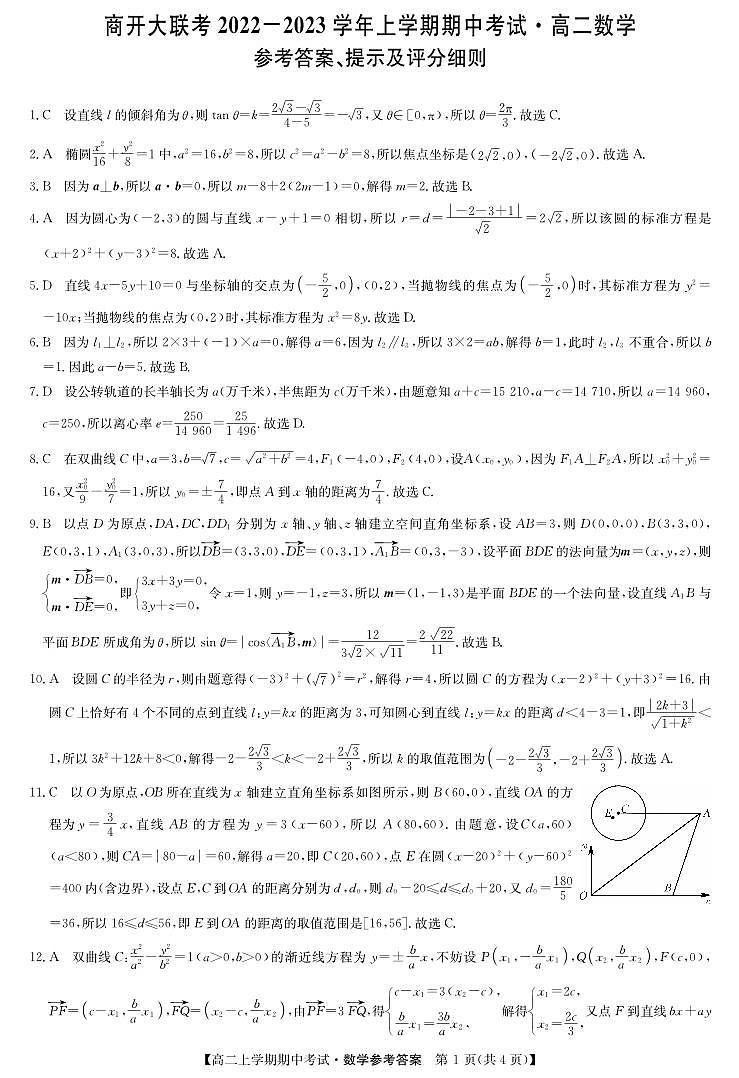 商开大联考 2022－2023 学年上学期期中考试·高二数学
参考答案、提示及评分细则
1. C 设直线 l 的倾斜角为 θ,则 tan θ=k=(2√3-√3)/(4-5)=-√3,又 θ∈[0,π),所以 θ=2π/3. 故选 C.
2. A 椭圆 x²/16+y²/8=1 中,a²=16,b²=8,所以 c²=a²-b²=8,所以焦点坐标是(2√2,0),(-2√2,0). 故选 A.
3. B 因为 a⊥b,所以 a·b=0,所以 m-8+2(2m-1)=0,解得 m=2. 故选 B.
4. A 因为圆心为(-2,3)的圆与直线 x-y+1=0 相切,所以 r=d=|-2-3+1|/√2=2√2,所以该圆的标准方程是
(x+2)²+(y-3)²=8. 故选 A.
5. D 直线 4x-5y+10=0 与坐标轴的交点为(-5/2,0),(0,2),当抛物线的焦点为(-5/2,0)时,其标准方程为 y²=
-10x;当抛物线的焦点为(0,2)时,其标准方程为 x²=8y. 故选 D.
6. B 因为 l₁⊥l₂,所以 2×3+(-1)×a=0,解得 a=6,因为 l₂∥l₃,所以 3×2=ab,解得 b=1,此时 l₂,l₃ 不重合,所以 b
=1. 因此 a-b=5. 故选 B.
7. D 设公转轨道的长半轴长为 a(万千米),半焦距为 c(万千米),由题意知 a+c=15 210,a-c=14 710,所以 a=14 960,
c=250,所以离心率 e=250/14 960=25/1 496. 故选 D.
8. C 在双曲线 C 中,a=3,b=√7,c=√(a²+b²)=4,F₁(-4,0),F₂(4,0),设A(x₀,y₀),因为 F₁A⊥F₂A,所以 x₀²+y₀²=
16,又 x₀²/9-y₀²/7=1,所以 y₀=±7/4,即点 A 到 x 轴的距离为 7/4. 故选 C.
9. B 以点 D 为原点,DA,DC,DD₁ 分别为 x 轴、y 轴、z 轴建立空间直角坐标系,设 AB=3,则 D(0,0,0),B(3,3,0),
E(0,3,1),A₁(3,0,3),所以DB→=(3,3,0),DE→=(0,3,1),A₁B→=(0,3,-3),设平面 BDE 的法向量为m=(x,y,z),则
{m·DB→=0, m·DE→=0, 即{3x+3y=0, 3y+z=0, 令 x=1,则 y=-1,z=3,所以 m=(1,-1,3)是平面 BDE 的一个法向量,设直线 A₁B 与
平面 BDE 所成角为 θ,所以 sin θ=|cos⟨A₁B→,m⟩|=12/(3√2×√11)=2√22/11. 故选 B.
10. A 设圆 C 的半径为 r,则由题意得(-3)²+(√7)²=r²,解得 r=4,所以圆 C 的方程为(x-2)²+(y+3)²=16. 由
圆 C 上恰好有 4 个不同的点到直线 l:y=kx 的距离为 3,可知圆心到直线 l:y=kx 的距离 d<4-3=1,即|2k+3|/√(1+k²)<
1,所以 3k²+12k+8<0,解得-2-2√3/3<k<-2+2√3/3,所以 k 的取值范围为(-2-2√3/3,-2+2√3/3). 故选 A.
11. C 以 O 为原点,OB 所在直线为 x 轴建立直角坐标系如图所示,则 B(60,0),直线 OA 的方
程为 y=3/4 x,直线 AB 的方程为 y=3(x-60),所以 A(80,60). 由题意,设C(a,60)
(a<80),则 CA=|80-a|=60,解得 a=20,即 C(20,60),点 E 在圆(x-20)²+(y-60)²
=400 内(含边界),设点 E,C 到OA 的距离分别为 d,d₀,则 d₀-20≤d≤d₀+20,又 d₀=180/5
=36,所以 16≤d≤56,即 E 到OA 的距离的取值范围是[16,56]. 故选 C.
E C A
O B
12. A 双曲线 C:x²/a²-y²/b²=1(a>0,b>0)的渐近线方程为 y=±b/a x,不妨设 P(x₁,-b/a x₁),Q(x₂,b/a x₂),F(c,0),
PF→=(c-x₁,b/a x₁),FQ→=(x₂-c,b/a x₂),由PF→=3 FQ→,得{c-x₁=3(x₂-c), b/a x₁=3b/a x₂, 解得{x₁=2c, x₂=2c/3, 又点 F 到直线 bx+ay
【高二上学期期中考试·数学参考答案 第 1 页(共 4 页)】